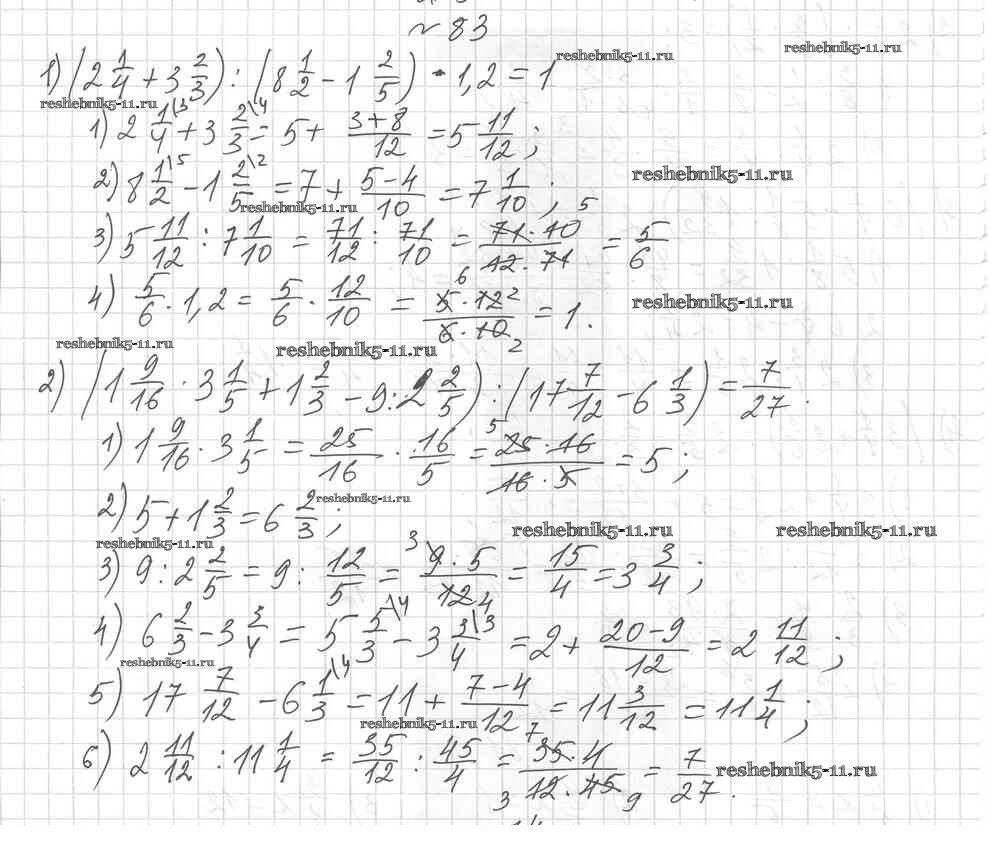 № 83
reshebnik5-11.ru
reshebnik5-11.ru
1) (2 1/4 + 3 2/3) : (8 1/2 - 1 2/5) · 1,2 = 1
reshebnik5-11.ru
1) 2 1/4\3 + 3 2/3\4 = 5 + (3+8)/12 = 5 11/12 ;
reshebnik5-11.ru
2) 8 1/2\5 - 1 2/5\2 = 7 + (5-4)/10 = 7 1/10 ;
reshebnik5-11.ru
3) 5 11/12 : 7 1/10 = 71/12 : 71/10 = (71·10 5)/(6 12·71) = 5/6
4) 5/6 · 1,2 = 5/6 · 12/10 = (5·12 2)/(6·10 2) = 1.
reshebnik5-11.ru
reshebnik5-11.ru
reshebnik5-11.ru
2) (1 9/16 · 3 1/5 + 1 2/3 - 9 : 2 2/5) : (17 7/12 - 6 1/3) = 7/27.
1) 1 9/16 · 3 1/5 = 25/16 · 16/5 = (5 25·16)/(16·5) = 5 ;
reshebnik5-11.ru
2) 5 + 1 2/3 = 6 2/3 ;
reshebnik5-11.ru
reshebnik5-11.ru
reshebnik5-11.ru
3) 9 : 2 2/5 = 9 : 12/5 = (3\9·5)/(12 4) = 15/4 = 3 3/4 ;
4) 6 2/3 - 3 3/4 = 5 5/3\4 - 3 3/4\3 = 2 + (20-9)/12 = 2 11/12 ;
reshebnik5-11.ru
5) 17 7/12 - 6 1/3\4 = 11 + (7-4)/12 = 11 3/12 = 11 1/4 ;
reshebnik5-11.ru
6) 2 11/12 : 11 1/4 = 35/12 : 45/4 = (7 35·4)/(3 12·45 9) = 7/27.
reshebnik5-11.ru